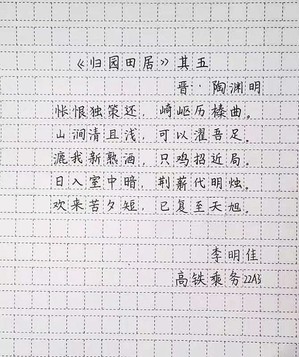 《归园田居》其五
晋·陶渊明
怅恨独策还，崎岖历榛曲。
山涧清且浅，可以濯吾足。
漉我新熟酒，只鸡招近局。
日入室中暗，荆薪代明烛。
欢来苦夕短，已复至天旭。
李明佳
高铁乘务22A3